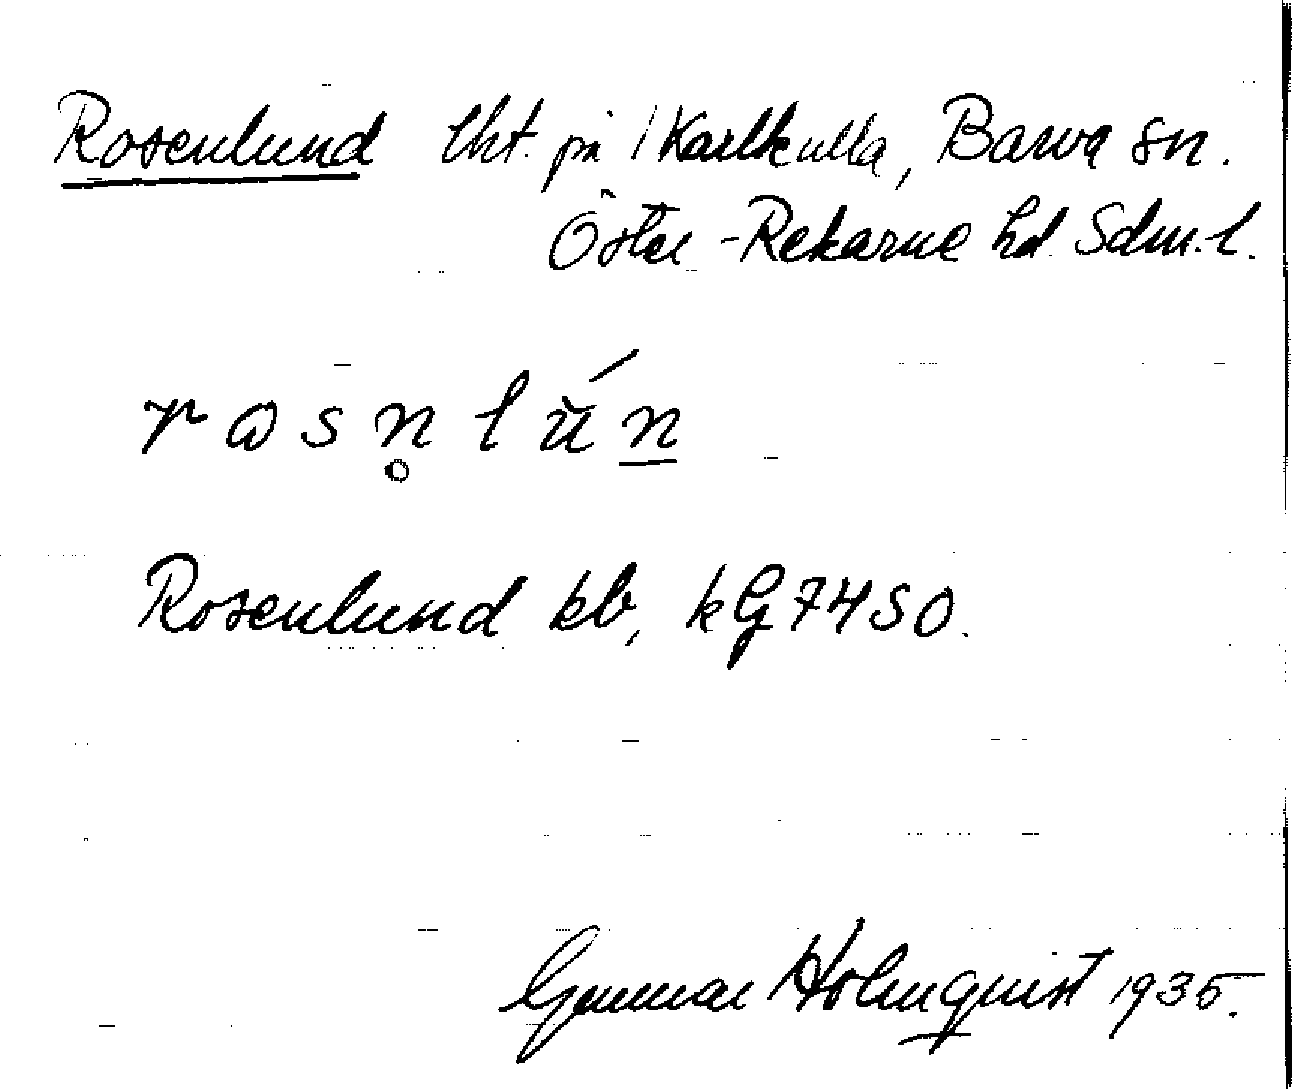 Rosenlund lht. på Karlkulla, Barva sn.
Öster-Rekarne hd. Sdm. l.
Rosenlund kb, kG 7450.
Gunnar Holmquist 1935.